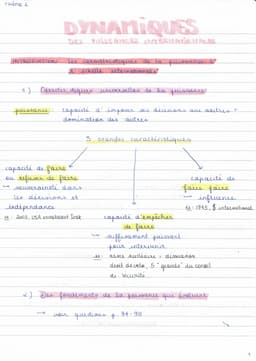 Thème 2
DYNAMIQUES
DES PUISSANCES INTERNATIONALES
INTRODUCTION : les caractéristiques de la puissance à
l'échelle internationale
1) Caractéristiques universelles de la puissance
puissance : capacité d'imposer ses décisions aux autres
domination des autres
3 grandes caractéristiques
capacité de faire
ou refuser de faire
→ souveraineté dans
les décisions et
indépendance
ex : 2003, USA envahissent Irak
capacité d'empêcher
de faire
→ suffisamment puissant
pour intervenir
ex : arme nucléaire
droit de veto, 5 "grands" du conseil
de sécurité
capacité de
faire faire
→ influence
ex : 1945, $ international
2) Des fondements de la puissance qui évoluent
→ voir questions p. 94-95
1